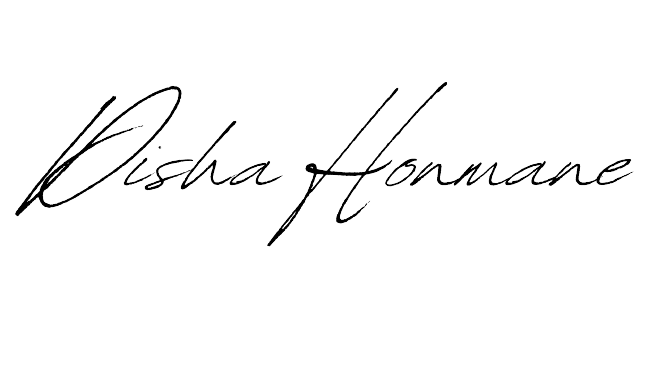 Disha Honmane